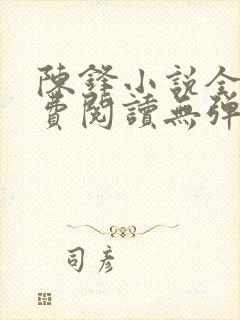 陳鋒小説全
費閱讀無彈
司彥